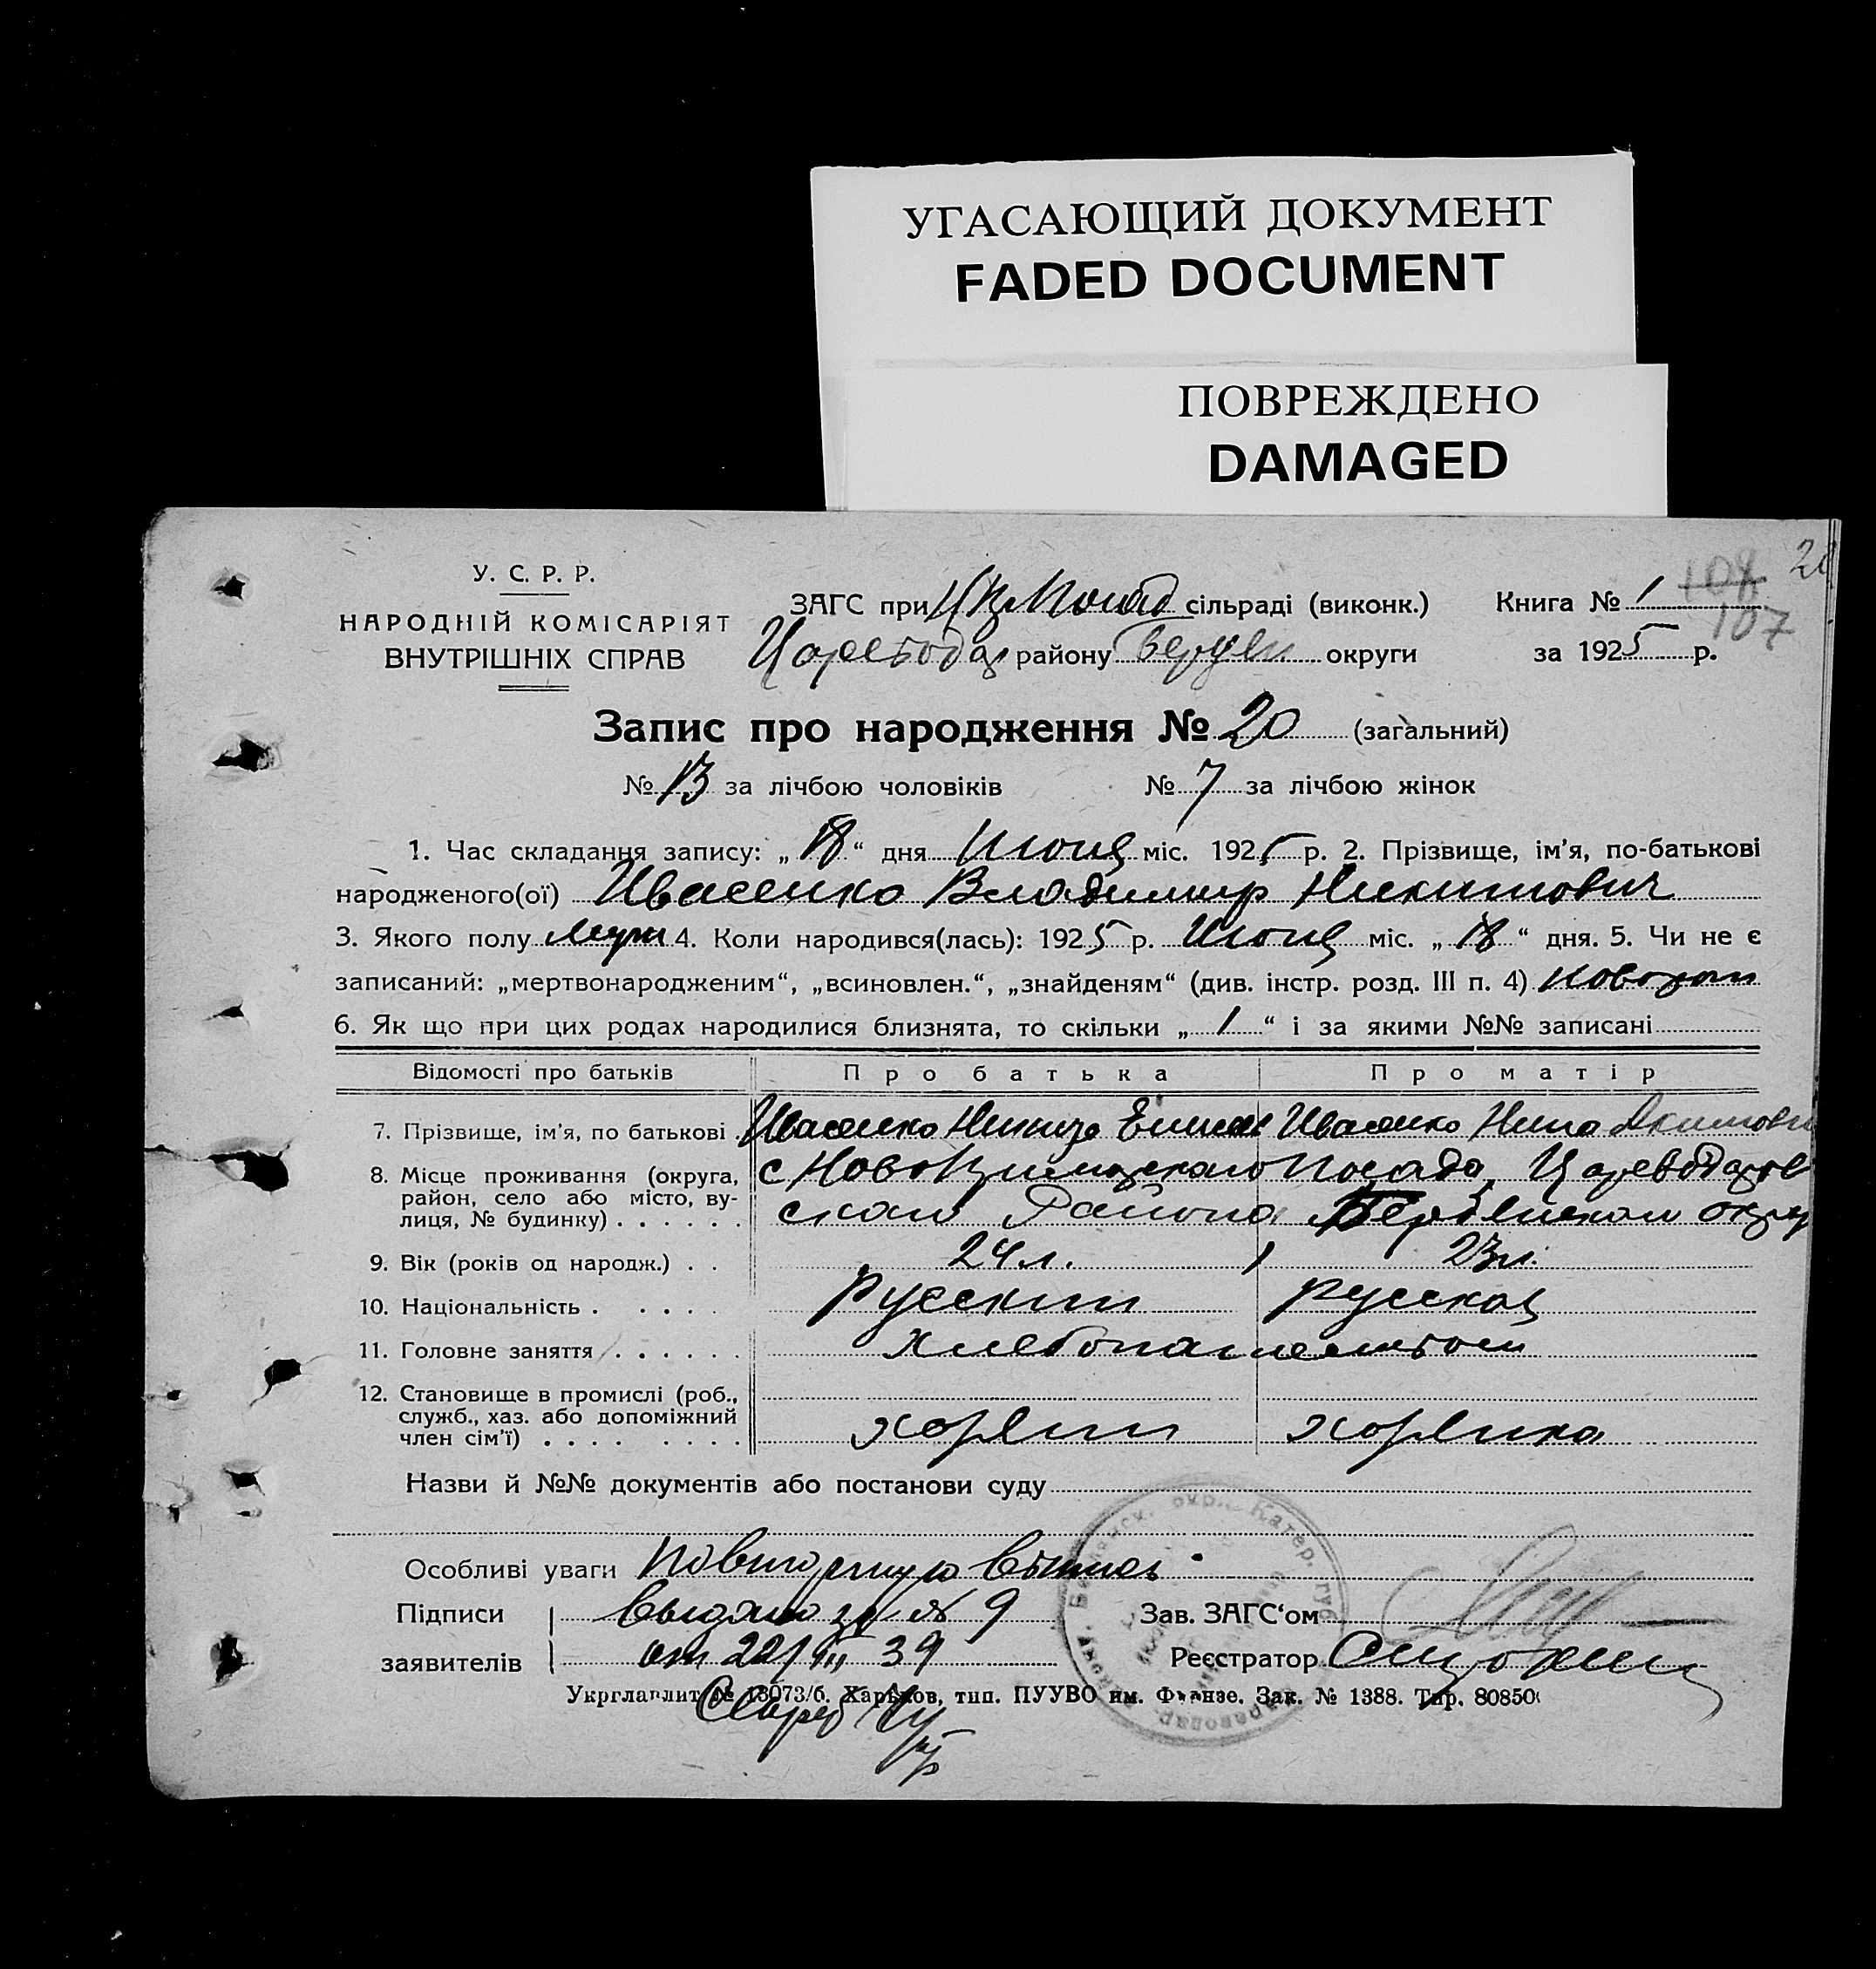 УГАСАЮЩИЙ ДОКУМЕНТ
FADED DOCUMENT
ПОВРЕЖДЕНО
DAMAGED
20
108
107
У. С. Р. Р.
НАРОДНІЙ КОМІСАРІЯТ
ВНУТРІШНІХ СПРАВ
ЗАГС при сільраді (виконк.)
району округи
Книга № 1
за 1925 р.
Запис про народження № 20 (загальний)
№ 13 за лічбою чоловіків № 7 за лічбою жінок
1. Час складання запису: „18“ дня Июня міс. 1925 р. 2. Прізвище, ім'я, по-батькові
народженого(ої) Ивасенко Владимир Никитович
3. Якого полу Муж 4. Коли народився(лась): 1925 р. Июня міс. „18“ дня. 5. Чи не є
записаний: „мертвонародженим“, „всиновлен.“, „знайденям“ (див. інстр. розд. III п. 4)
6. Як що при цих родах народилися близнята, то скільки „1“ і за якими №№ записані
Відомості про батьків Про батька Про матір
7. Прізвище, ім'я, по батькові Ивасенко Никита Ивасенко Нина Акимовн
8. Місце проживання (округа, район, село або місто, вулиця, № будинку) с Посада, Царевода
скаго Района Бердянскаго окру
9. Вік (років од народж.) 24 л. 23 л.
10. Національність Русскии русская
11. Головне заняття Хлебопашеством
12. Становище в промислі (роб., служб., хаз. або допоміжний член сім'ї) хозяин хозяика
Назви й №№ документів або постанови суду
Особливі уваги Повторную
Підписи выдано за № 9 Зав. ЗАГС‘ом
заявителів от 22/III 39 Реєстратор
Укрглавлит № 13073/б. Харьков, тип. ПУУВО им. Фрунзе. Зак. № 1388. Тир. 80850